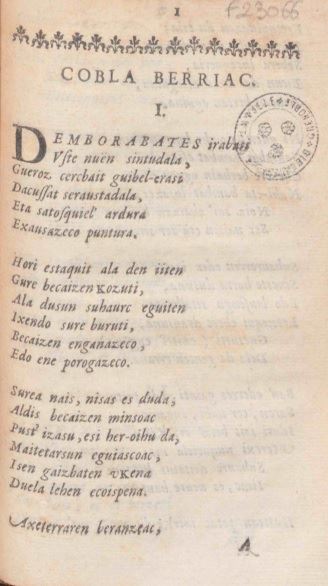 1
F23066
COBLA BERRIAC.
I.
DEMBORABATES irabasi
Vste nuën sintudala,
Gueroz cercbait guibel-erasi
Dacussat seraustadala,
Eta satosquiel' ardura
Exausazeco puntura.
Hori estaquit ala den iiten
Gure becaizen Kozuti,
Ala dusun suhaurc eguiten
Ixendo sure buruti,
Becaizen enganazeco,
Edo ene porogazeco.
Surea nais, nisas es duda,
Aldis becaizen minsoac
Pust' izasu, esi her-oihu da,
Maitetarsun eguiascoac,
Isen gaizbaten vKena
Duela lehen ecoispena.
Axeterraren beranzeac,
A